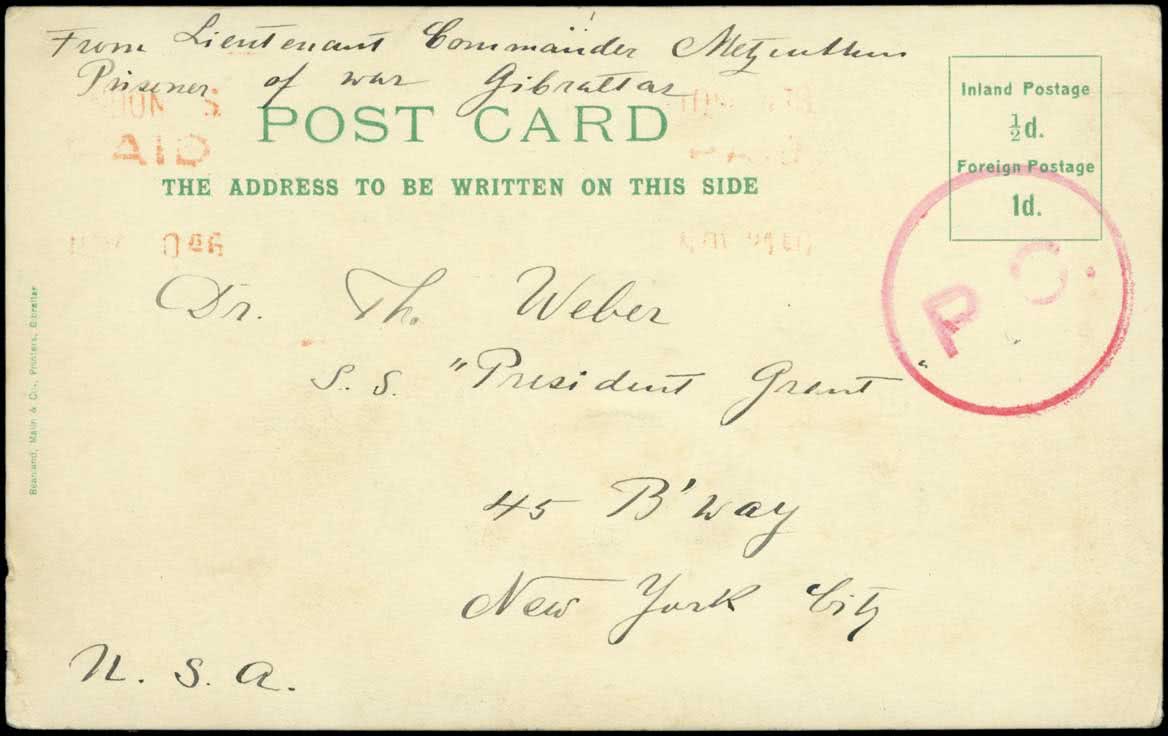 From Lieutenant Commander
Prisoner of war Gibraltar
POST CARD
AID
THE ADDRESS TO BE WRITTEN ON THIS SIDE
Inland Postage
½d.
Foreign Postage
1d.
P O.
Dr. Th. Weber
S. S. "President Grant"
45 B'way
New York City
U. S. A.
Beanland, Malin & Co., Printers, Gibraltar